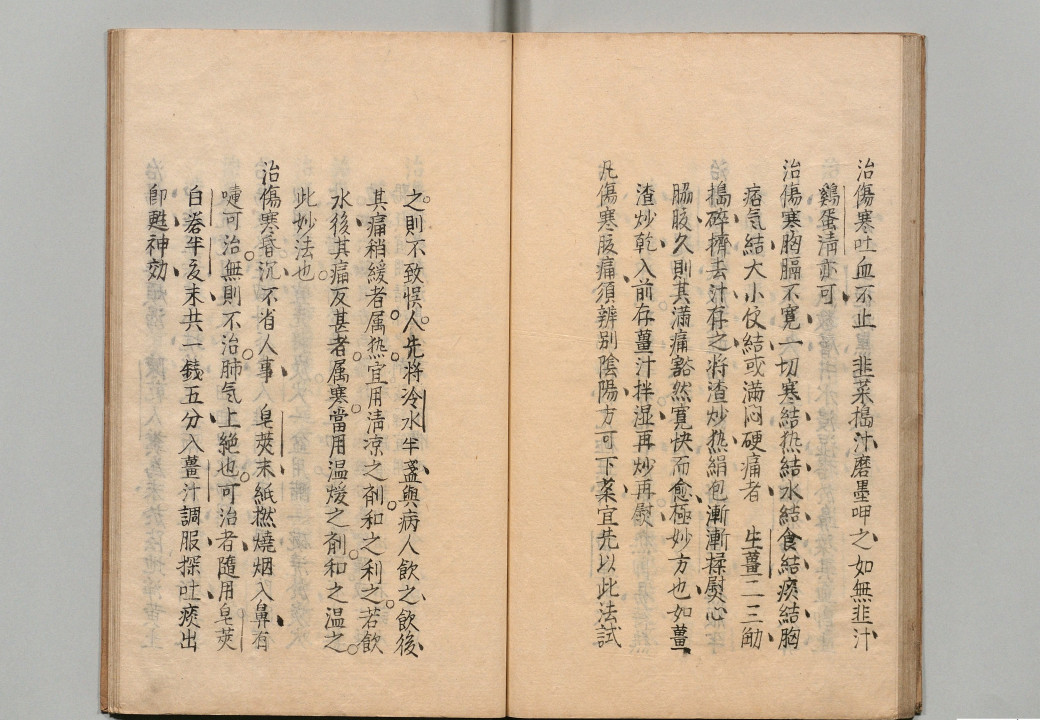 治傷寒吐血不止　韭菜搗汁磨墨呷之如無韭汁
鷄蛋清亦可
治傷寒胸膈不寛一切寒結热結水結食結痰結胸
痞気結大小便結或滿悶硬痛者　生薑二三觔
搗碎擠去汁存之将渣炒热絹包漸漸揉熨心
脇腋久則其滿痛豁然寛快而愈極妙方也如薑
渣炒乾入前存薑汁拌湿再炒再熨
凡傷寒腹痛須辨别陰陽方可下藥宜先以此法試
之則不致悞人先将冷水半盞與病人飲之飲後
其痛稍緩者属热宜用清凉之剤和之利之若飲
水後其痛反甚者属寒當用温煖之剤和之温之
此妙法也
治傷寒昏沉不省人事　皂莢末紙撚燒烟入鼻有
嚏可治無則不治肺気上絶也可治者隨用皂莢
白礬半夏末共一錢五分入薑汁調服探吐痰出
即甦神効